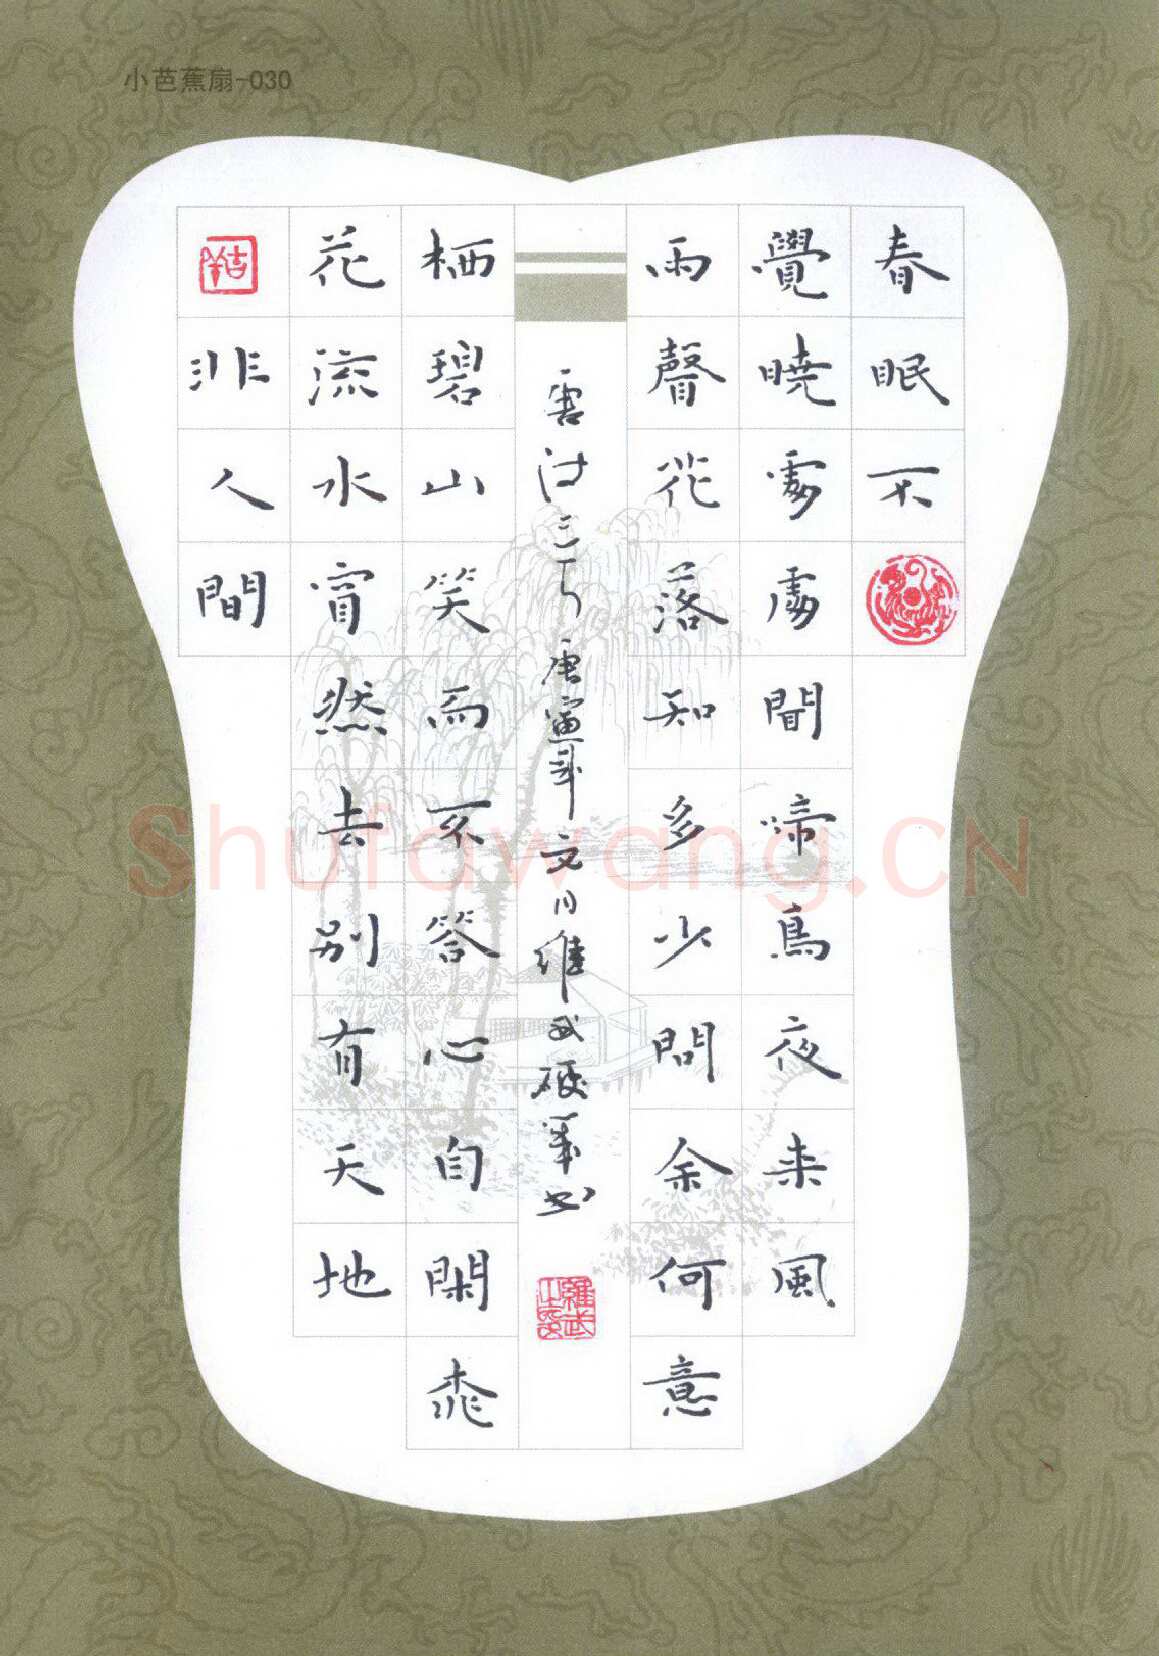 小芭蕉扇-030
春眠不
覺曉處處聞啼鳥夜来風
雨聲花落知多少問余何意
栖碧山笑而不答心自閑桃
花流水窅然去别有天地
非人間
唐诗二
文月維武硬筆书
羅武
Shufawang.CN